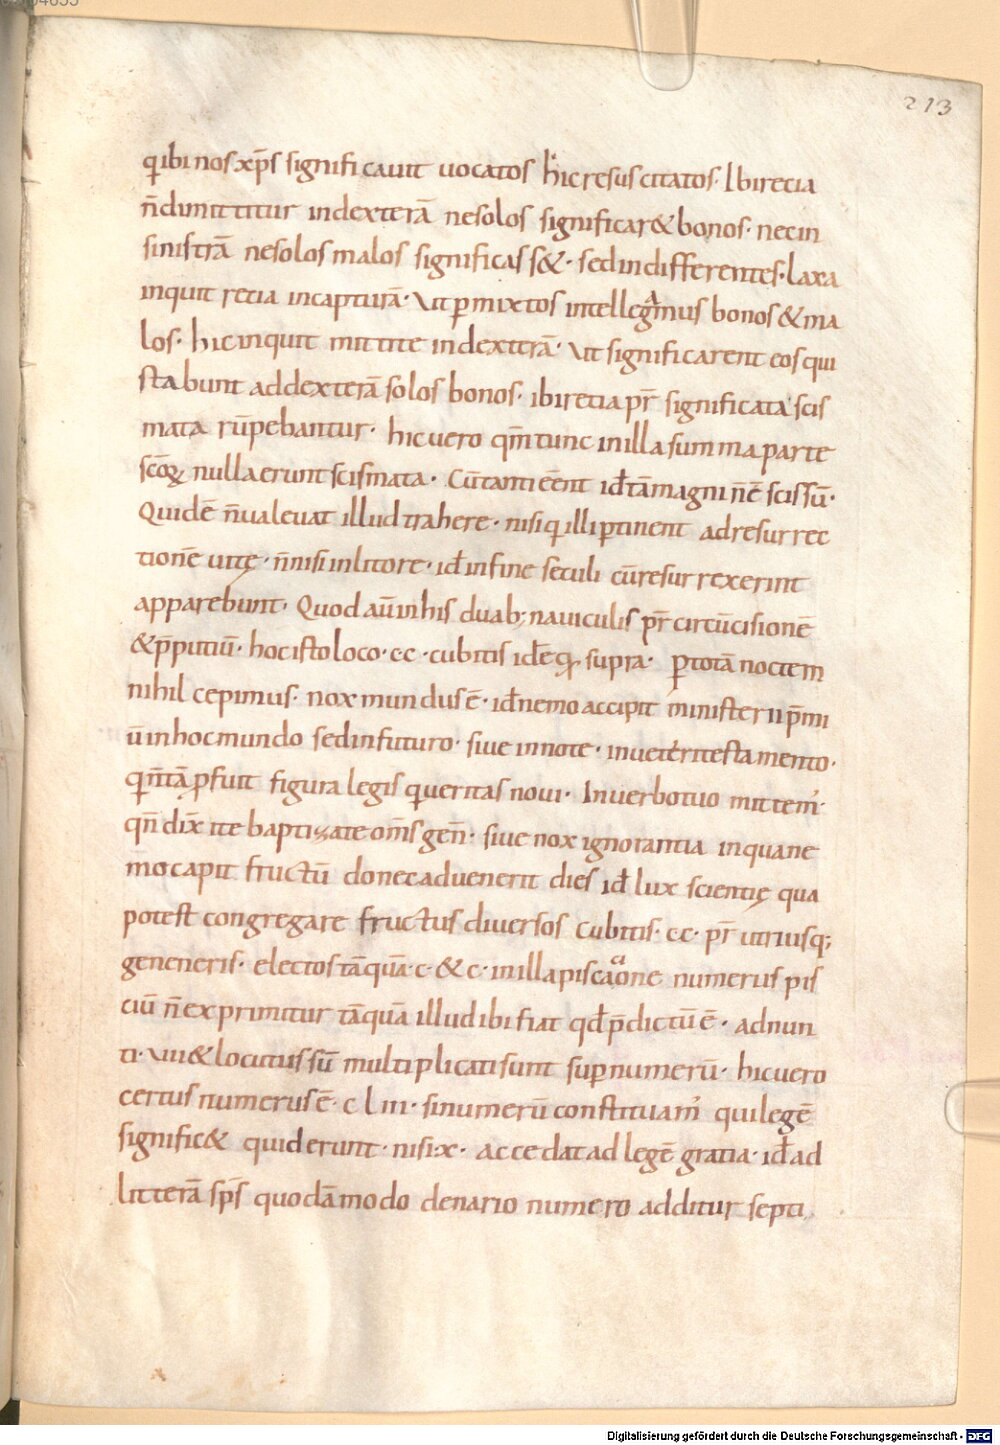 213
q ibi nos xp̄s significauit uocatos hic resuscitatos. Ibi retia
n̄ dimittitur in dexterā ne solos significar& bonos. nec in
sinistrā ne solos malos significass&. sed indifferentes. laxa
inquit retia in capturā. Ut p mixtos intellegamus bonos & ma
los. hic inquit mittite in dexterā. Ut significarent eos qui
stabunt ad dexterā solos bonos. ibi retia pr̄ significata scis
mata rūpebantur. hic uero qm̄ tunc in illa summa parte
scōꝝ nulla erunt scismata. Cū tanti eēnt id tā magni n̄ ē scissū.
Quidē n̄ ualeuat illud trahere. nisi q illi ptinent ad resurrec
tionē uitę. n̄ nisi in litore. id in fine seculi cū resurrexerint
apparebunt. Quod aū in his duab; nauiculis pr̄ circūcisionē
& p̄putiū. hoc isto loco. cc. cubitis idēꝗ supra. p totā noctem
nihil cepimus. nox mundus ē. id nemo accipit ministerii p̄mi
ū in hoc mundo sed in futuro. siue in note. in ueteri testamento.
qn̄tā pfuit figura legis q ueritas noui. In uerbo tuo mittem̄.
qn̄ dix̄ ite baptizate om̄s gen̄. siue nox ignorantia in qua ne
mo capit fructū donec aduenerit dies id lux scientię qua
potest congregare fructus diuersos cubitis. cc. pr̄ utriusq;
geneneris. electos tāquā. c. & c. in illa piscatione numerus pis
ciū n̄ exprimitur tāquā illud ibi fiat qd p̄dictū ē. adnun
ti. Uui & locutus sū multiplicati sunt sup numerū. hic uero
certus numerus ē. c l iii. si numerū constituam̄ qui legē
signific& quid erunt. nisi. x. accedat ad legē gratia. id ad
litterā sp̄s quodāmodo denario numero additur septi
Digitalisierung gefördert durch die Deutsche Forschungsgemeinschaft - DFG